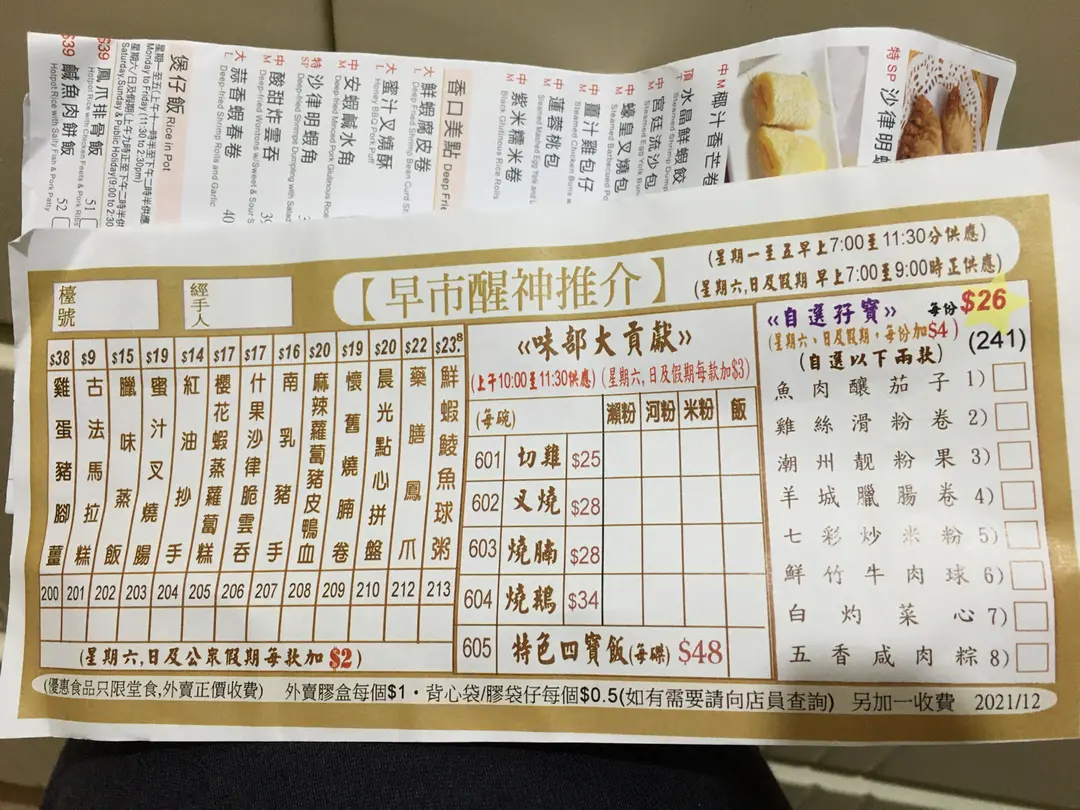 檯號
經手人
【早市醒神推介】
(星期一至五早上7:00至11:30分供應)
(星期六,日及假期 早上7:00至9:00時正供應)
$38 雞蛋豬腳薑 200
$9 古法馬拉糕 201
$15 臘味蒸飯 202
$19 蜜汁叉燒腸 203
$14 紅油抄手 204
$17 櫻花蝦蒸蘿蔔糕 205
$17 什果沙律脆雲吞 206
$16 南乳豬手 207
$20 麻辣蘿蔔豬皮鴨血 208
$19 懷舊燒腩卷 209
$20 晨光點心拼盤 210
$22 藥膳鳳爪 212
$23.8 鮮蝦鯪魚球粥 213
(星期六,日及公眾假期每款加 $2)
《味部大貢獻》
(上午10:00至11:30供應) (星期六,日及假期每款加$3)
(每碗) 瀨粉 河粉 米粉 飯
601 切雞 $25
602 叉燒 $28
603 燒腩 $28
604 燒鵝 $34
605 特色四寶飯(每碟) $48
《自選孖寶》 每份 $26
(星期六、日及假期，每份加$4)
(自選以下兩款) (241)
魚肉釀茄子 1)
雞絲滑粉卷 2)
潮州靚粉果 3)
羊城臘腸卷 4)
七彩炒米粉 5)
鮮竹牛肉球 6)
白灼菜心 7)
五香咸肉粽 8)
(優惠食品只限堂食,外賣正價收費) 外賣膠盒每個$1・背心袋/膠袋仔每個$0.5(如有需要請向店員查詢) 另加一收費 2021/12
特 SP 沙律明
中 M 椰汁香芒卷
頂 T 水晶鮮蝦餃
Steamed Shrimp
中 M 宮廷流沙包
Steamed Egg Yolk
中 M 蠔皇叉燒包
Steamed Barbecued
中 M 薑汁雞包仔
Steamed Chicken Buns
中 M 蓮蓉桃包
Steamed Mashed Egg Yolk and
中 M 紫米糯米卷
Black Glutinous Rice Rolls
香口美點 Deep
大 L 鮮蝦腐皮卷
Deep-fried Shrimp Bean Curd
大 L 蜜汁叉燒酥
Honey BBQ Pork Puff
中 M 安蝦鹹水角
Deep-fried Minced Pork Glutinous Rice
特 SP 沙律明蝦角
Deep-fried Shrimp Dumpling with Salad
中 M 酸甜炸雲吞
Deep-fried Wontons w/Sweet & Sour
大 L 蒜香蝦春卷 40
Deep-fried Shrimp Rolls and Garlic
煲仔飯 Rice in Pot
星期一至五(上午十一時半至下午二時半供應)
Monday to Friday (11:30 to 2:30pm)
星期六/日及假期(上午九時正至下午二時半供應)
Saturday,Sunday & Public Holiday(9:00 to 2:30
$39 鳳爪排骨飯 51
Hotpot Rice with Chicken Feets & Pork Ribs
$39 鹹魚肉餅飯 52
Hotpot Rice with Salty Fish & Pork Patty